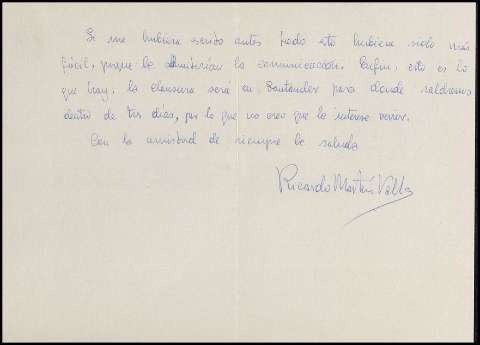 Si me hubiera escrito antes todo esto hubiera sido más
fácil, porque le admitirían la comunicación. Enfin, esto es lo
que hay; la clausura será en Santander para donde saldremos
dentro de tres días, por lo que no creo que le interese venir.
Con la amistad de siempre le saluda
Ricardo Martín Valls